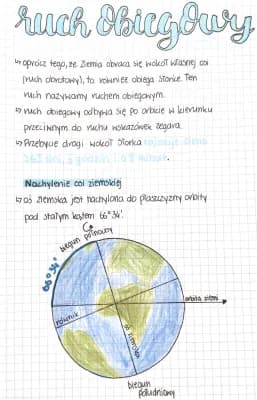 ruch obiegowy
↳ oprócz tego, że Ziemia obraca się wokół własnej osi
(ruch obrotowy), to również obiega Słońce. Ten
ruch nazywamy ruchem obiegowym.
↳ ruch obiegowy odbywa się po orbicie w kierunku
przeciwnym do ruchu wskazówek zegara.
↳ Przebycie drogi wokół Słońca zajmuje Ziemi
365 dni, 5 godzin i 49 minut.
Nachylenie osi ziemskiej
↳ oś ziemska jest nachylona do płaszczyzny orbity
pod stałym kątem 66°34'.
biegun
północny
66°34'
orbita ziemi
równik
oś ziemska
biegun
południowy